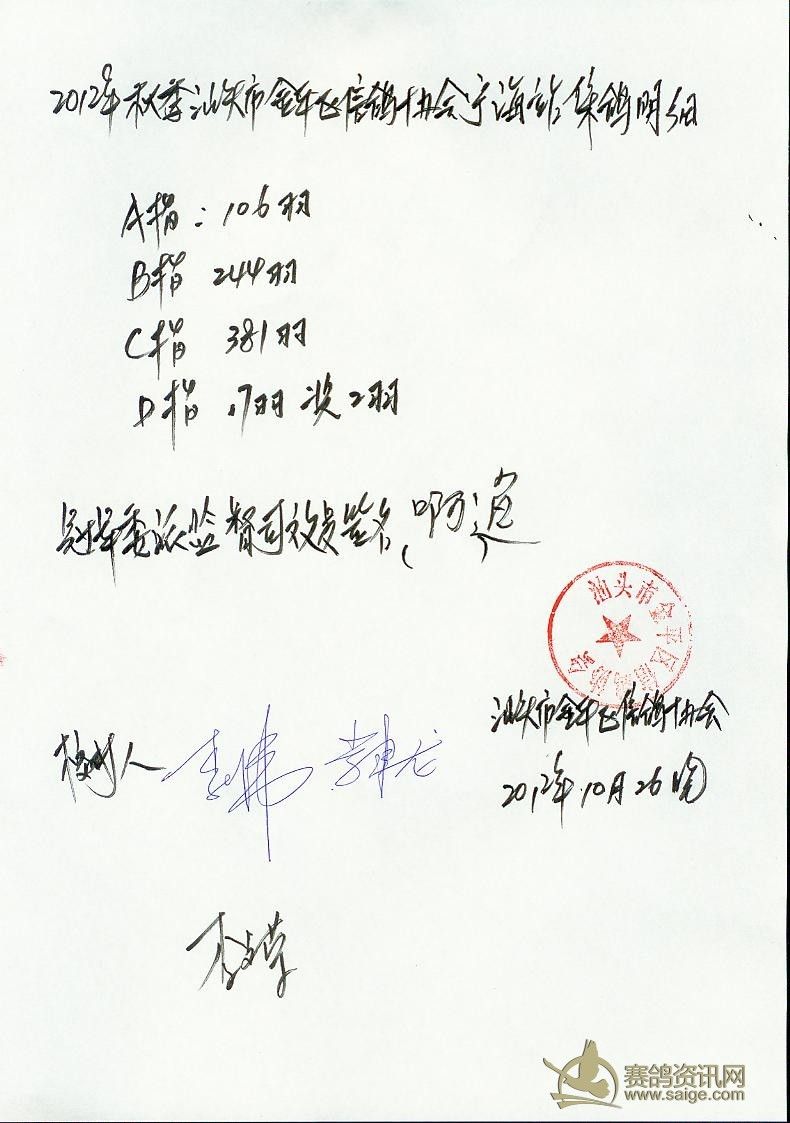 2012年秋季汕头市金平区信鸽协会宁海站集鸽明细
A指：106羽
B指 244羽
C指 381羽
D指 17羽 奖2羽
委派监督司放员签名
汕头市金平区信鸽协会
汕头市金平区信鸽协会
2012年10月26晚
人
赛鸽资讯网
www.saige.com